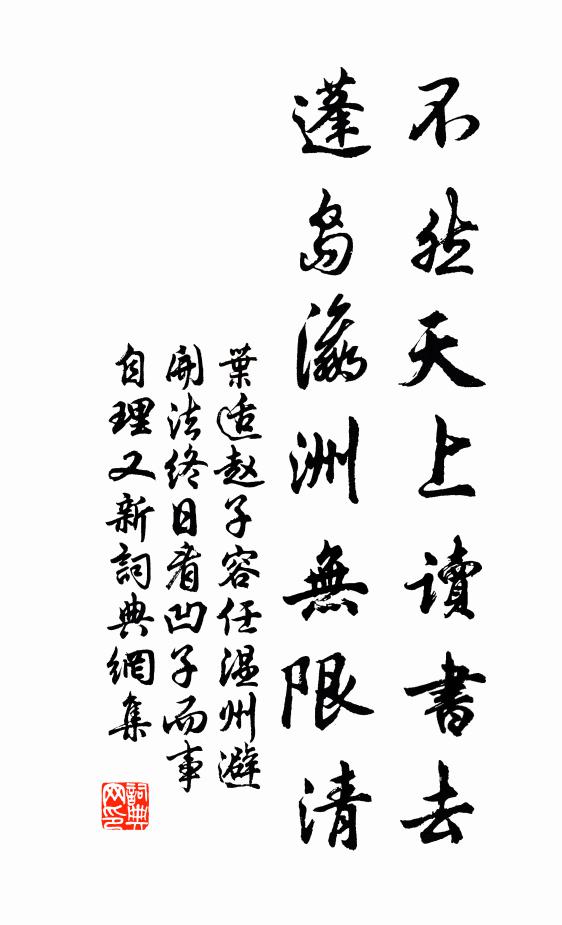 不然天上讀書去
蓬島瀛洲無限清
葉适赵子容任温州避
閑法终日看凹子而事
自理又新詞典網集
詞典网印